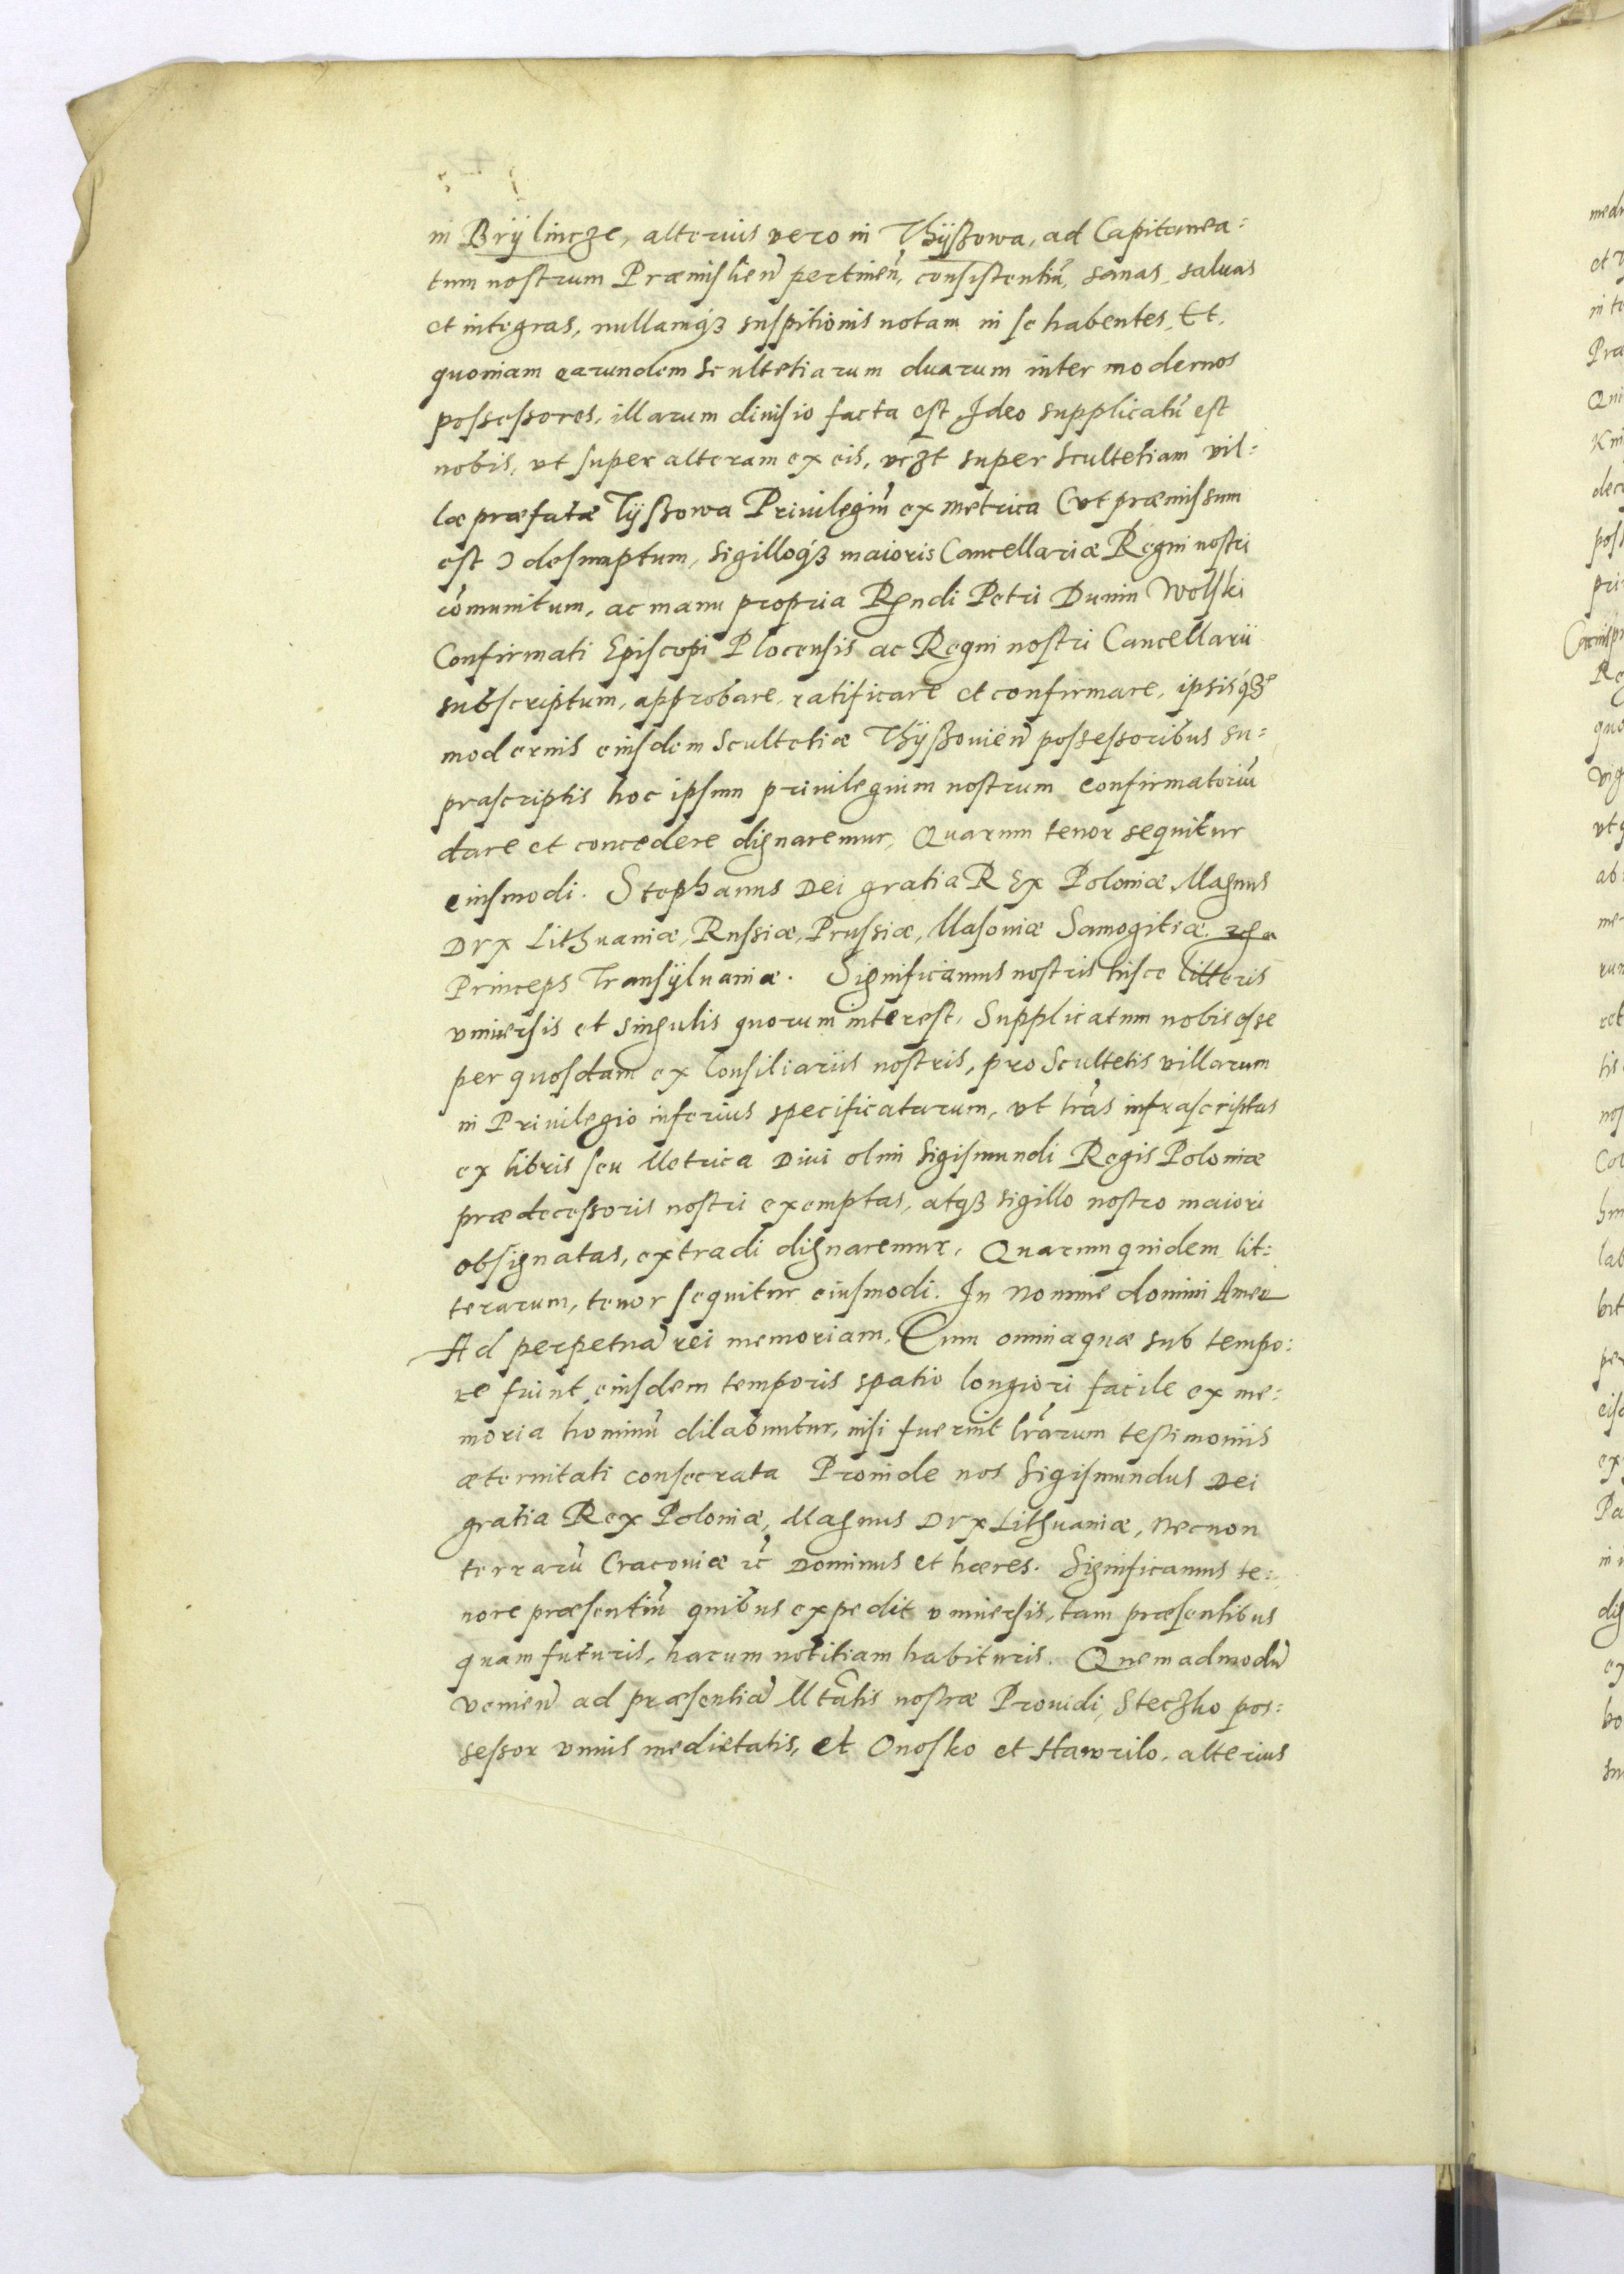 in Brÿlincze, alterius vero in Thÿszowa, ad Capitanea:
tum nostrum Præmislien̄ pertinen̄, consistentiū, sanas, saluas
et integras, nullamq́ꝫ suspitionis notam in se habentes, Et,
quoniam earundem Scultetiarum duarum inter modernos
possessores, illarum diuisio facta est Ideo supplicatū est
nobis, vt super alteram ex eis, vczt super Scultetiam vil:
læ præfatæ Tÿszowa Priuilegiū ex metrica (vt præmissum
est) desumptum, sigilloq́ꝫ maioris Cancellariæ Regni nostri
cōmunitum, ac manu propria Rn̄di Petri Dunin Wolski
Confirmati Episcopi Plocensis ac Regni nostri Cancellarii
subscriptum, approbare, ratificare et confirmare, ipsisq́ꝫ
modernis eiusdem Scultetiæ Thÿszouien̄ possessoribus su:
prascriptis hoc ipsum priuilegium nostrum confirmatoriū
dare et concedere dignaremur, Quarum tenor sequitur
eiusmodi. Stephanus Dei gratia REx Poloniæ, Magnus
Dux Lithuaniæ, Russiæ, Prussiæ, Masouiæ Samogitiæ,
Princeps Transÿluaniæ. Significamus nostris hisce litteris
vniuersis et singulis quorum interest, Supplicatum nobis esse
per quosdam ex Consiliariis nostris, pro Scultetis villarum
in Priuilegio inferius specificatarum, vt lr̄as infrascriptas
ex libris seu Metrica Diui olim Sigismundi Regis Poloniæ
prædecessoris nostri exemptas, atqꝫ sigillo nostro maiori
obsignatas, extradi dignaremur, Quarum quidem lit:
terarum, tenor sequitur eiusmodi. In Nomine domini Amen
Ad perpetuā rei memoriam, Cum omnia quæ sub tempo:
re fiunt eiusdem temporis spatio longiori facile ex me:
moria hominū dilabuntur, nisi fuerint lr̄arum testimoniis
æternitati consecrata Proinde nos Sigismundus Dei
gratia Rex Poloniæ, Magnus Dux Lithuaniæ, Necnon
terrarū Cracouiæ ꝛc̄ Dominus et hæres. Significamus te:
nore præsentiū quibus expedit vniuersis, tam præsentibus
quam futuris, harum notitiam habituris. Quemadmodū
venien̄ ad præsentiā Mtātis nostræ Prouidi, Steczko pos:
sessor vnius medietatis, et Onosko et Hawrilo, alterius